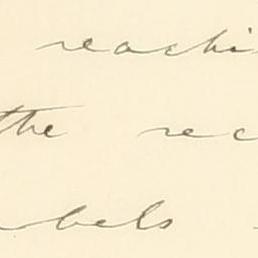 reachi
the rec
bels